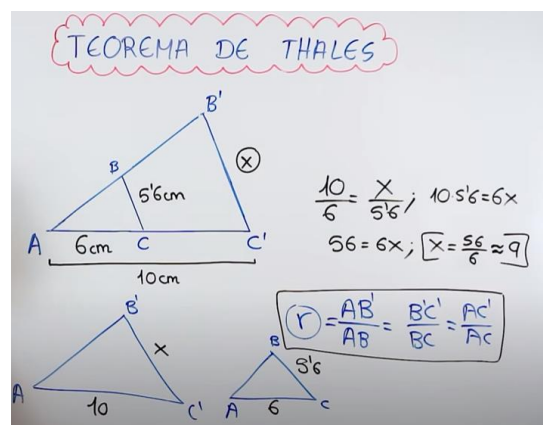 TEOREMA DE THALES
B'
B
5'6cm
x
A
6cm
C
C'
10cm
10/6 = x/5'6 ; 10·5'6=6x
56=6x ; x=56/6≈9
r = AB'/AB = B'C'/BC = AC'/AC
B'
x
A
10
C'
B
5'6
A
6
C